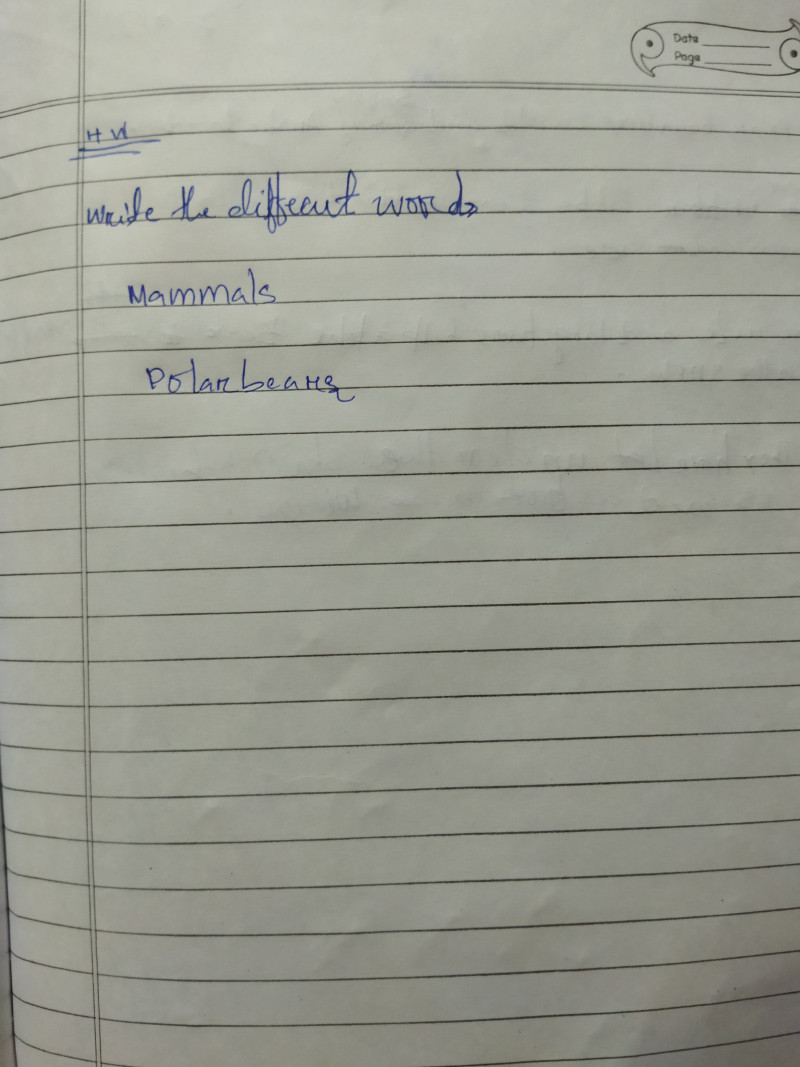 Date
Page
H W
Write the different words
Mammals
Polar bears